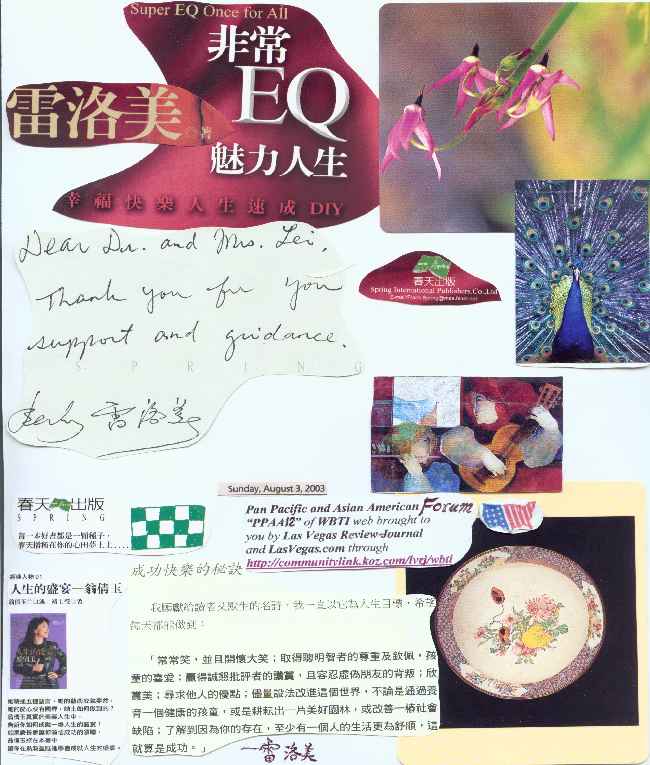 Super EQ Once for All
非常
EQ
雷洛美 著
魅力人生
幸福快樂人生速成DIY
Dear Dr. and Mrs. Lei,
Thank you for you
support and guidance.
SPRING
雷洛美
春天出版
Spring International Publishers Co., Ltd
Sunday, August 3, 2003
Pan Pacific and Asian American Forum
"PPAA12" of WBTI web brought to
you by Las Vegas Review-Journal
and LasVegas.com through
http://communitylink.koz.com/lvrj/wbti
春天出版
SPRING
每一本好書都是一顆種子，
人生的盛宴—翁倩玉
成功快樂的秘訣
「常常笑，並且開懷大笑；取得聰明智者的尊重及欽佩，孩
童的喜愛；贏得誠懇批評者的讚賞，且容忍虛偽朋友的背叛；欣
賞美；尋求他人的優點；儘量設法改進這個世界，不論是通過養
育一個健康的孩童，或是耕耘出一片美好園林，或改善一樁社會
缺陷；了解到因為你的存在，至少有一個人的生活更為舒順，這
就算是成功。」
—雷洛美